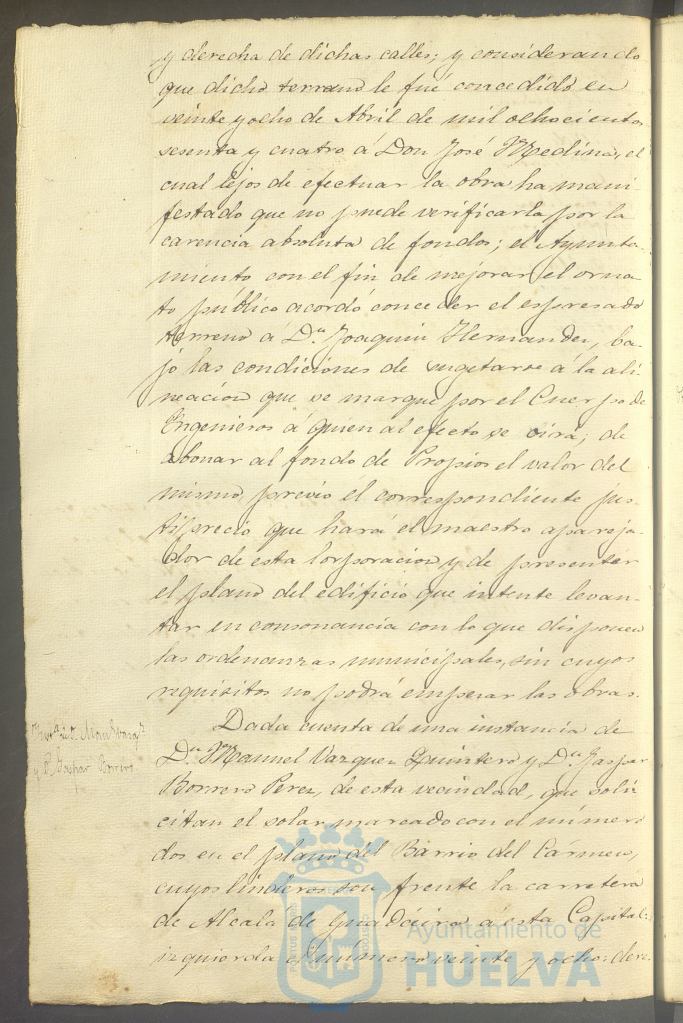 y derecha de dichas calles; y considerando
que dicho terreno le fué concedido en
veinte y ocho de Abril de mil ochocientos
sesenta y cuatro á Don José Medina, el
cual lejos de efectuar la obra ha mani
festado que no puede verificarla por la
carencia absoluta de fondos; el Ayunta-
miento con el fin de mejorar el orna
to público acordó conceder el espresado
terreno á Dn. Joaquin Hernandez, ba-
jo las condiciones de sugetarse á la ali-
neacion que se marque por el Cuerpo de
Ingenieros á quien al efecto se oirá; de
abonar al fondo de Propios el valor del
mismo, previo el correspondiente jus-
tiprecio que hará el maestro apareja-
dor de esta Corporacion y de presentar
el plano del edificio que intente levan-
tar en consonancia con lo que disponen
las ordenanzas municipales, sin cuyos
requisitos no podrá empezar las obras.
Dada cuenta de una instancia de
Dn. Manuel Vazquez Quintero y Dn. Gaspar
y D. Gaspar Borrero
Borrero Perez, de esta vecindad, que soli
citan el solar marcado con el número
dos en el plano del Barrio del Cármen,
cuyos linderos son frente la carretera
de Alcalá de Guadaira á esta Capital:
izquierda el número veinte y ocho: dere
Ayuntamiento de
HUELVA